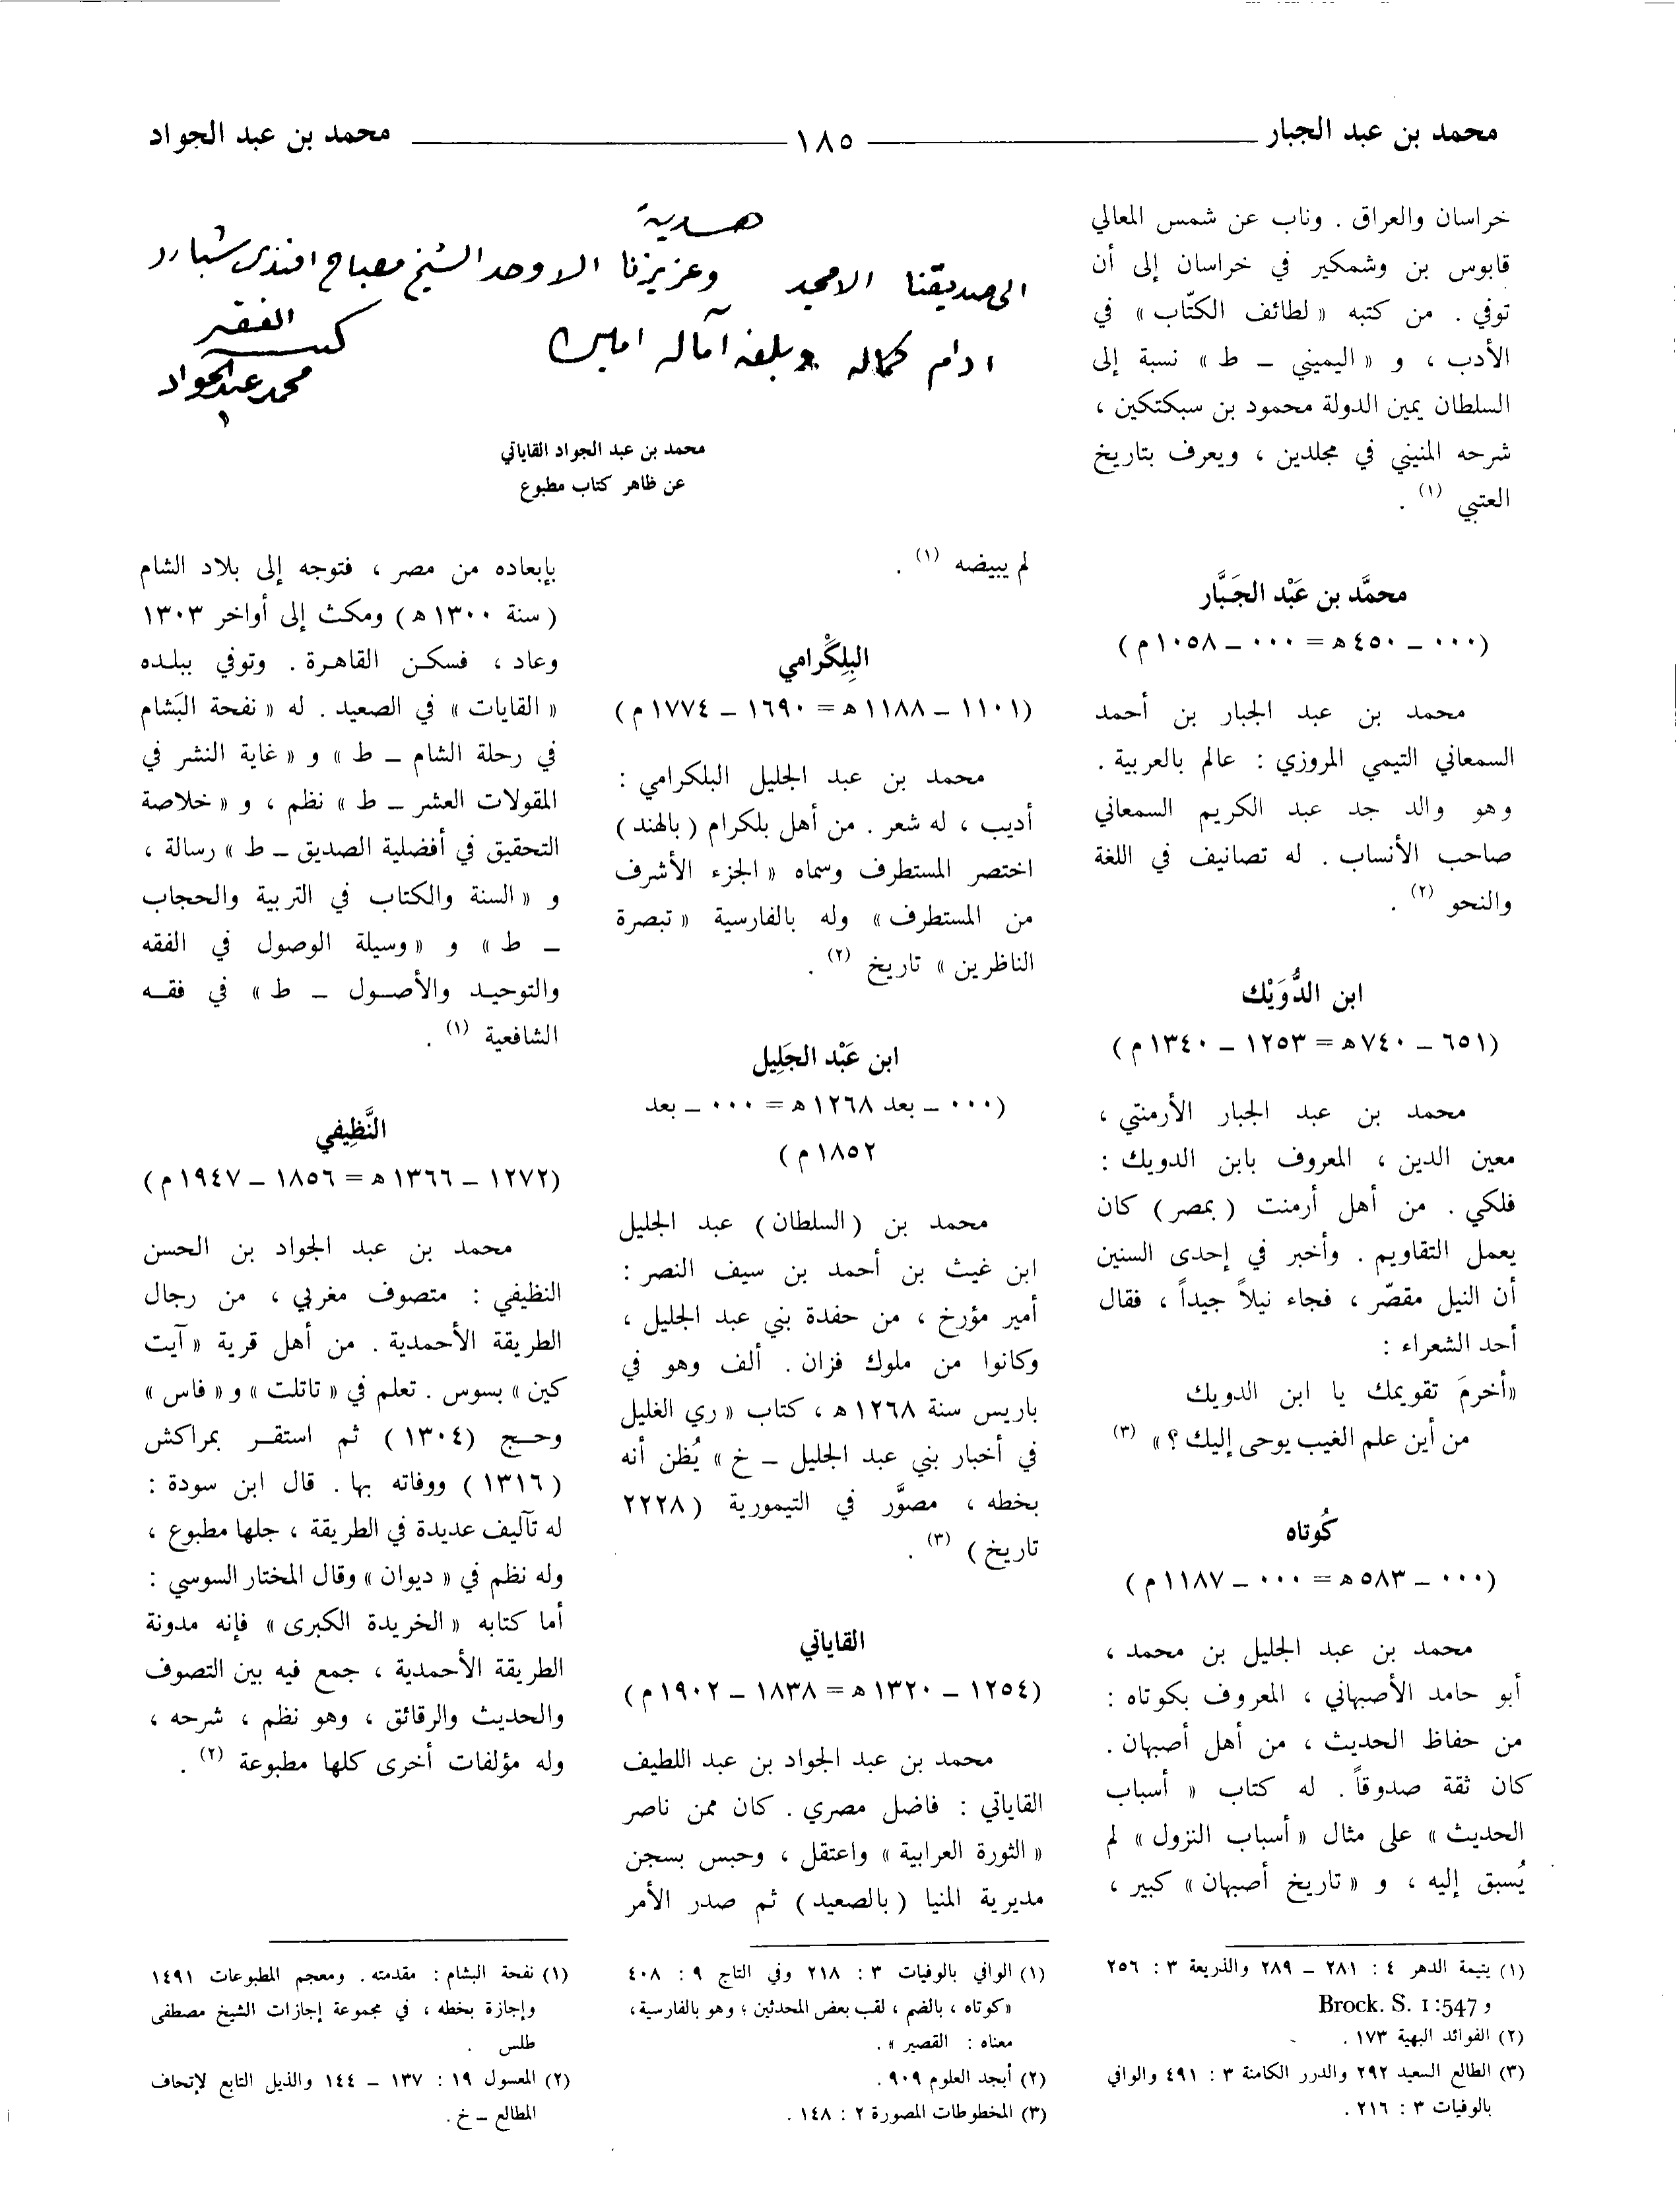 محمد بن عبد الجبار ــــــ ١٨٥ ــــــ محمد بن عبد الجواد
خراسان والعراق . وناب عن شمس المعالي
قابوس بن وشمكير في خراسان إلى أن
توفي . من كتبه « لطائف الكتّاب » في
الأدب ، و « اليميني ــ ط » نسبة إلى
السلطان يمين الدولة محمود بن سبكتكين ،
شرحه المنيني في مجلدين ، ويعرف بتاريخ
العتبي (١) .
محمَّد بن عَبْد الجَبَّار
(٠٠٠ ــ ٤٥٠ هـ = ٠٠٠ ــ ١٠٥٨ م)
محمد بن عبد الجبار بن أحمد
السمعاني التيمي المروزي : عالم بالعربية .
وهو والد جد عبد الكريم السمعاني
صاحب الأنساب . له تصانيف في اللغة
والنحو (٢) .
ابن الدُّوَيْك
(٦٥١ ــ ٧٤٠ هـ = ١٢٥٣ ــ ١٣٤٠ م)
محمد بن عبد الجبار الأرمنتي ،
معين الدين ، المعروف بابن الدويك :
فلكي . من أهل أرمنت ( بمصر ) كان
يعمل التقاويم . وأخبر في إحدى السنين
أن النيل مقصّر ، فجاء نيلاً جيداً ، فقال
أحد الشعراء :
«أخرمَ تقويمك يا ابن الدويك
من أين علم الغيب يوحى إليك ؟ » (٣)
كُوتاه
(٠٠٠ ــ ٥٨٣ هـ = ٠٠٠ ــ ١١٨٧ م)
محمد بن عبد الجليل بن محمد ،
أبو حامد الأصبهاني ، المعروف بكوتاه :
من حفاظ الحديث ، من أهل أصبهان .
كان ثقة صدوقاً . له كتاب « أسباب
الحديث » على مثال « أسباب النزول » لم
يُسبق إليه ، و « تاريخ أصبهان » كبير ،
(١) يتيمة الدهر ٤ : ٢٨١ ــ ٢٨٩ والذريعة ٣ : ٢٥٦
و Brock. S. I :547
(٢) الفوائد البهية ١٧٣ .
(٣) الطالع السعيد ٢٩٢ والدرر الكامنة ٣ : ٤٩١ والوافي
بالوفيات ٣ : ٢١٦ .
هدية
الى صديقنا الامجد وعزيزنا الاوحد الشيخ مصباح افندي شبارد
ادام كماله وبلغه آماله امين
كتبه
الفقير
محمد عبد الجواد
محمد بن عبد الجواد القاياتي
عن ظاهر كتاب مطبوع
لم يبيضه (١) .
البِلِكْرامي
(١١٠١ ــ ١١٨٨ هـ = ١٦٩٠ ــ ١٧٧٤ م)
محمد بن عبد الجليل البلكرامي :
أديب ، له شعر . من أهل بلكرام ( بالهند )
اختصر المستطرف وسماه « الجزء الأشرف
من المستطرف » وله بالفارسية « تبصرة
الناظرين » تاريخ (٢) .
ابن عَبْد الجَلِيل
(٠٠٠ ــ بعد ١٢٦٨ هـ = ٠٠٠ ــ بعد
١٨٥٢ م)
محمد بن (السلطان) عبد الجليل
ابن غيث بن أحمد بن سيف النصر :
أمير مؤرخ ، من حفدة بني عبد الجليل ،
وكانوا من ملوك فزان . ألف وهو في
باريس سنة ١٢٦٨ هـ ، كتاب « ري الغليل
في أخبار بني عبد الجليل ــ خ » يُظن أنه
بخطه ، مصوَّر في التيمورية ( ٢٢٢٨
تاريخ ) (٣) .
القاياتي
(١٢٥٤ ــ ١٣٢٠ هـ = ١٨٣٨ ــ ١٩٠٢ م)
محمد بن عبد الجواد بن عبد اللطيف
القاياتي : فاضل مصري . كان ممن ناصر
« الثورة العرابية » واعتقل ، وحبس بسجن
مديرية المنيا ( بالصعيد ) ثم صدر الأمر
(١) الوافي بالوفيات ٣ : ٢١٨ وفي التاج ٩ : ٤٠٨
«كوتاه ، بالضم ، لقب بعض المحدثين ؛ وهو بالفارسية،
معناه : القصير » .
(٢) أبجد العلوم ٩٠٩ .
(٣) المخطوطات المصورة ٢ : ١٤٨ .
بإبعاده من مصر ، فتوجه إلى بلاد الشام
( سنة ١٣٠٠ هـ ) ومكث إلى أواخر ١٣٠٣
وعاد ، فسكن القاهرة . وتوفي ببلده
« القايات » في الصعيد . له « نفحة البَشام
في رحلة الشام ــ ط » و « غاية النشر في
المقولات العشر ــ ط » نظم ، و « خلاصة
التحقيق في أفضلية الصديق ــ ط » رسالة ،
و « السنة والكتاب في التربية والحجاب
ــ ط » و « وسيلة الوصول في الفقه
والتوحيد والأصول ــ ط » في فقه
الشافعية (١) .
النَّظِيفي
(١٢٧٢ ــ ١٣٦٦ هـ = ١٨٥٦ ــ ١٩٤٧ م)
محمد بن عبد الجواد بن الحسن
النظيفي : متصوف مغربي ، من رجال
الطريقة الأحمدية . من أهل قرية « آيت
كين » بسوس . تعلم في « تاتلت » و « فاس »
وحج (١٣٠٤) ثم استقر بمراكش
(١٣١٦) ووفاته بها . قال ابن سودة :
له تآليف عديدة في الطريقة ، جلها مطبوع ،
وله نظم في « ديوان » وقال المختار السوسي :
أما كتابه « الخريدة الكبرى » فإنه مدونة
الطريقة الأحمدية ، جمع فيه بين التصوف
والحديث والرقائق ، وهو نظم ، شرحه ،
وله مؤلفات أخرى كلها مطبوعة (٢) .
(١) نفحة البشام : مقدمته . ومعجم المطبوعات ١٤٩١
وإجازة بخطه ، في مجموعة إجازات الشيخ مصطفى
طلس .
(٢) المعسول ١٩ : ١٣٧ ــ ١٤٤ والذيل التابع لإتحاف
المطالع ــ خ .